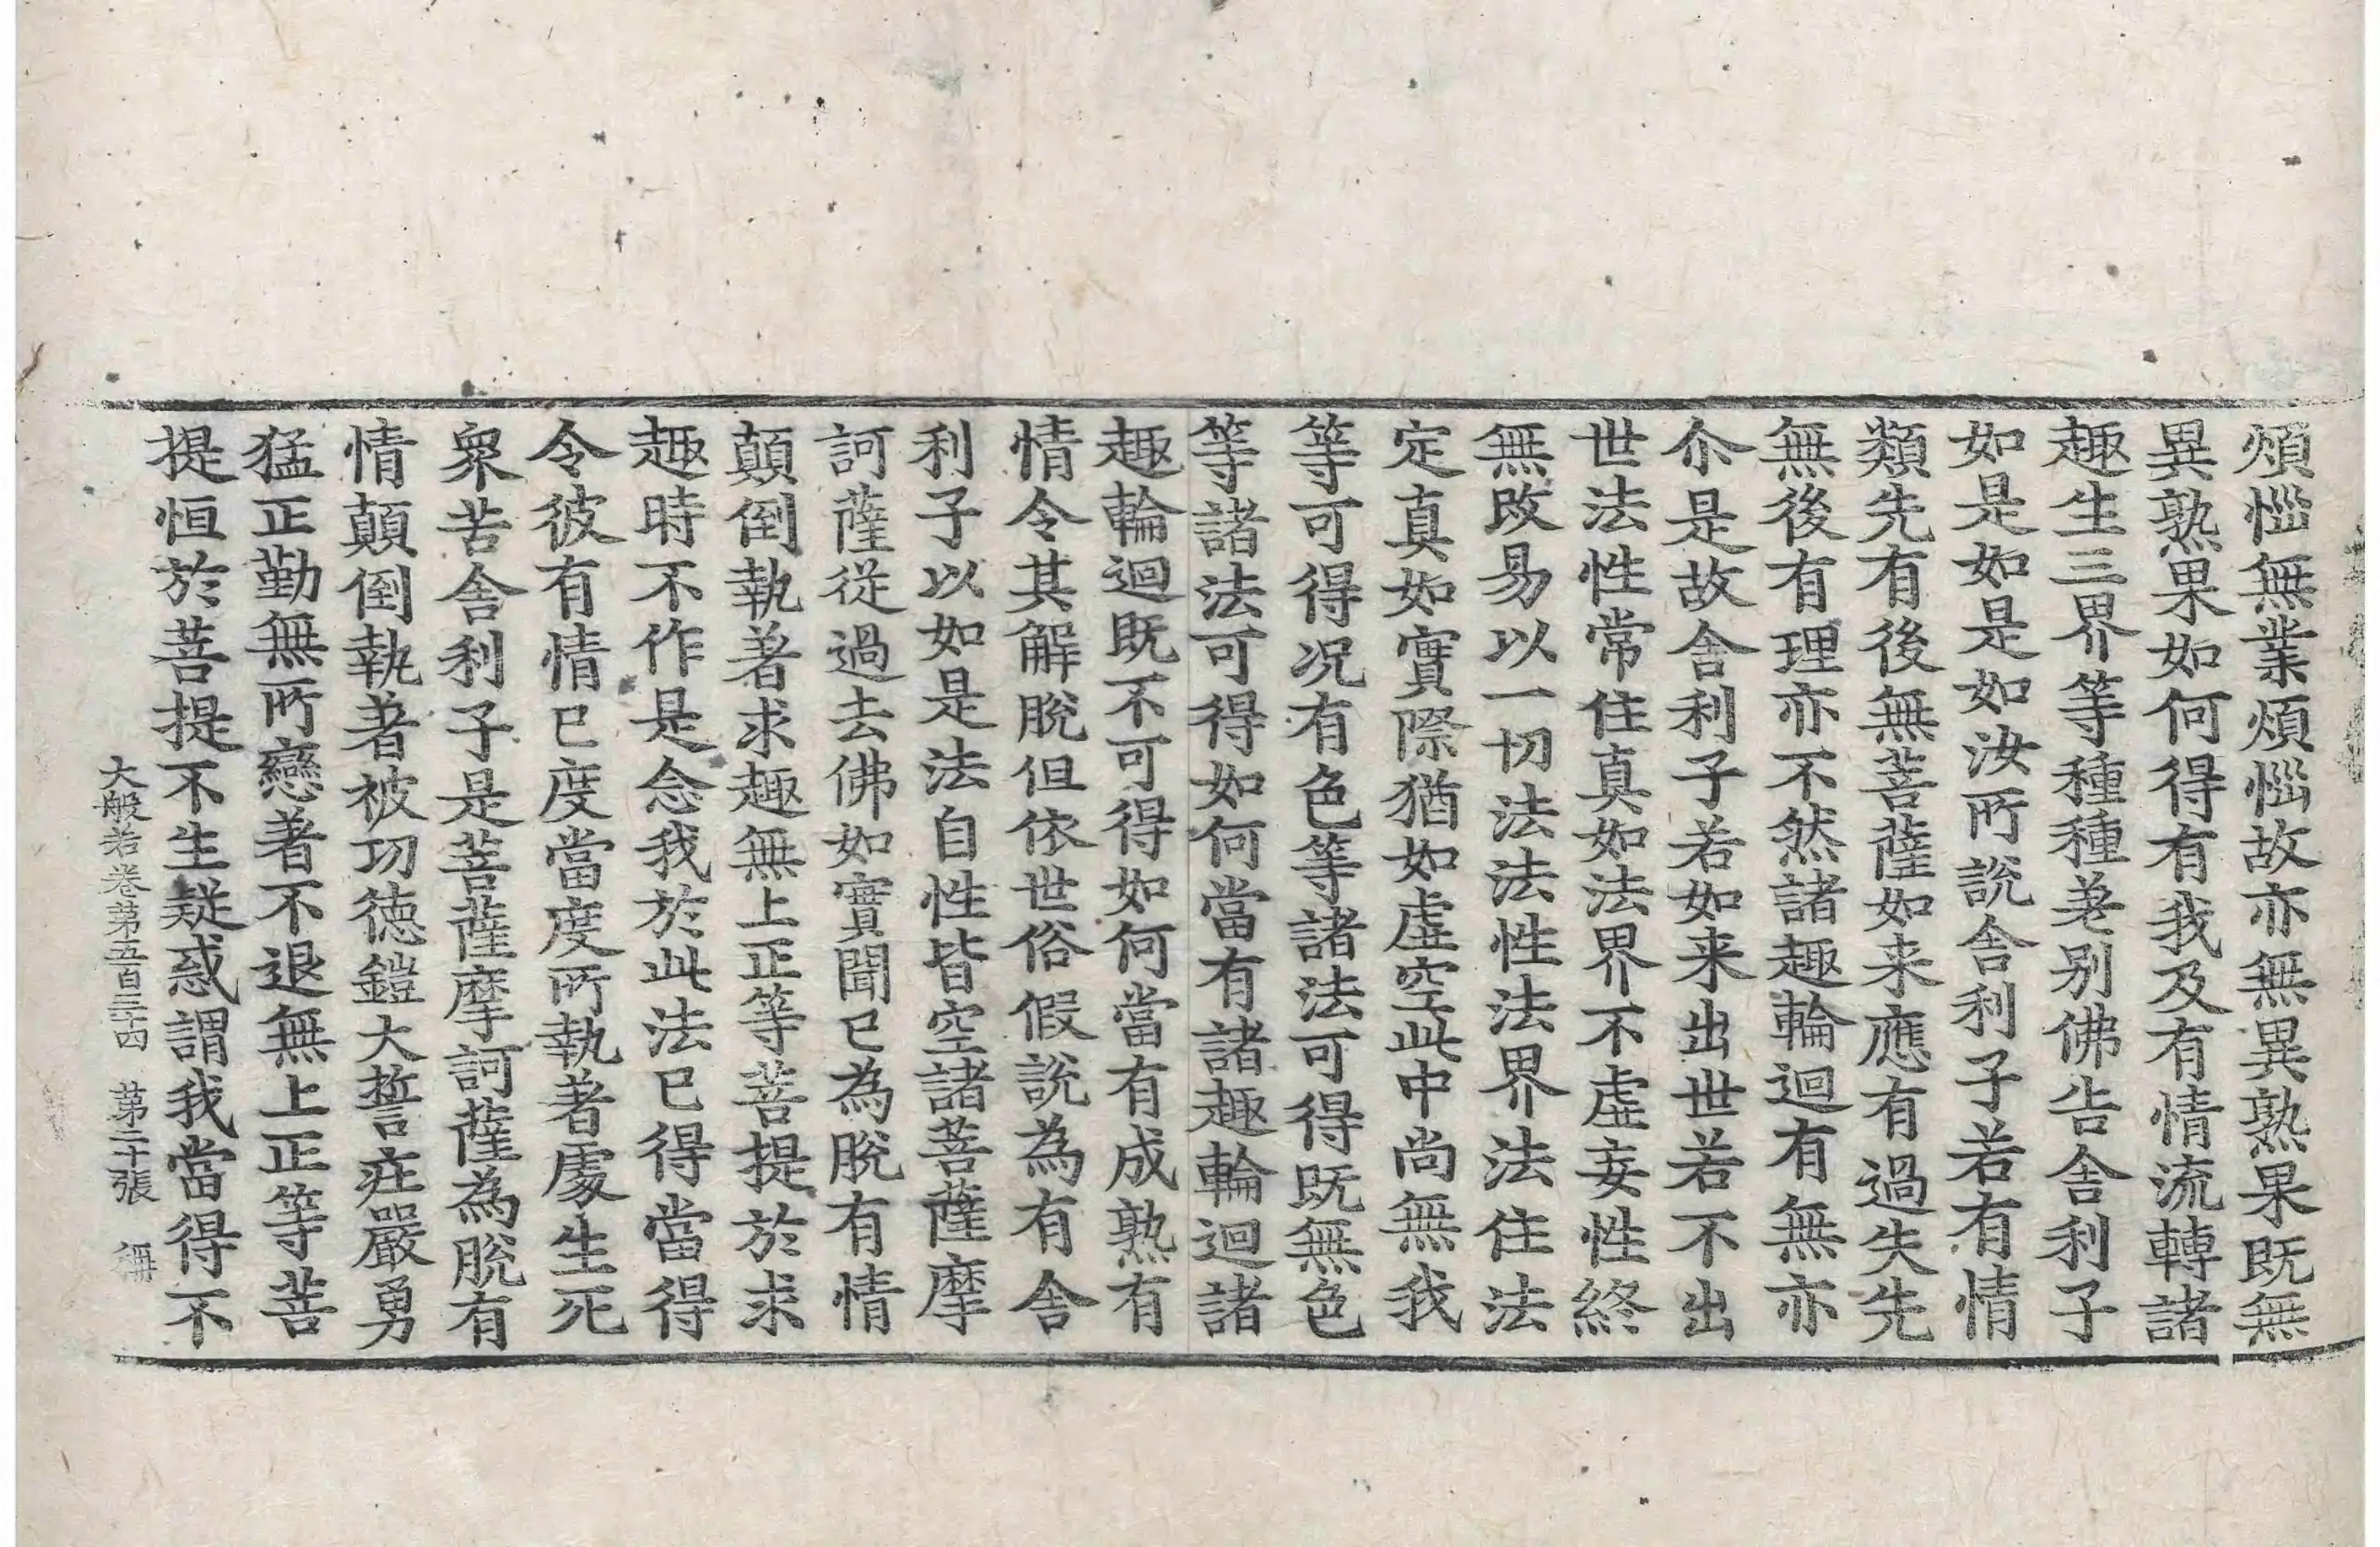 煩惱無業煩惱故亦無異熟果既無
異熟果如何得有我及有情流轉諸
趣生三界等種種差别佛告舍利子
如是如是如汝所說舍利子若有情
類先有後無菩薩如来應有過失先
無後有理亦不然諸趣輪迴有無亦
尒是故舍利子若如来出世若不出
世法性常住真如法界不虛妄性終
無改易以一切法法性法界法住法
定真如實際猶如虛空此中尚無我
等可得况有色等諸法可得既無色
等諸法可得如何當有諸趣輪迴諸
趣輪迴既不可得如何當有成熟有
情令其解脫但依世俗假說為有舍
利子以如是法自性皆空諸菩薩摩
訶薩從過去佛如實聞已為脫有情
顛倒執著求趣無上正等菩提於求
趣時不作是念我於此法已得當得
令彼有情已度當度所執著處生死
衆苦舍利子是菩薩摩訶薩為脫有
情顛倒執著被功德鎧大誓莊嚴勇
猛正勤無所戀著不退無上正等菩
提恒於菩提不生疑惑謂我當得不
大般若卷第五百三十四　第二十張　稱